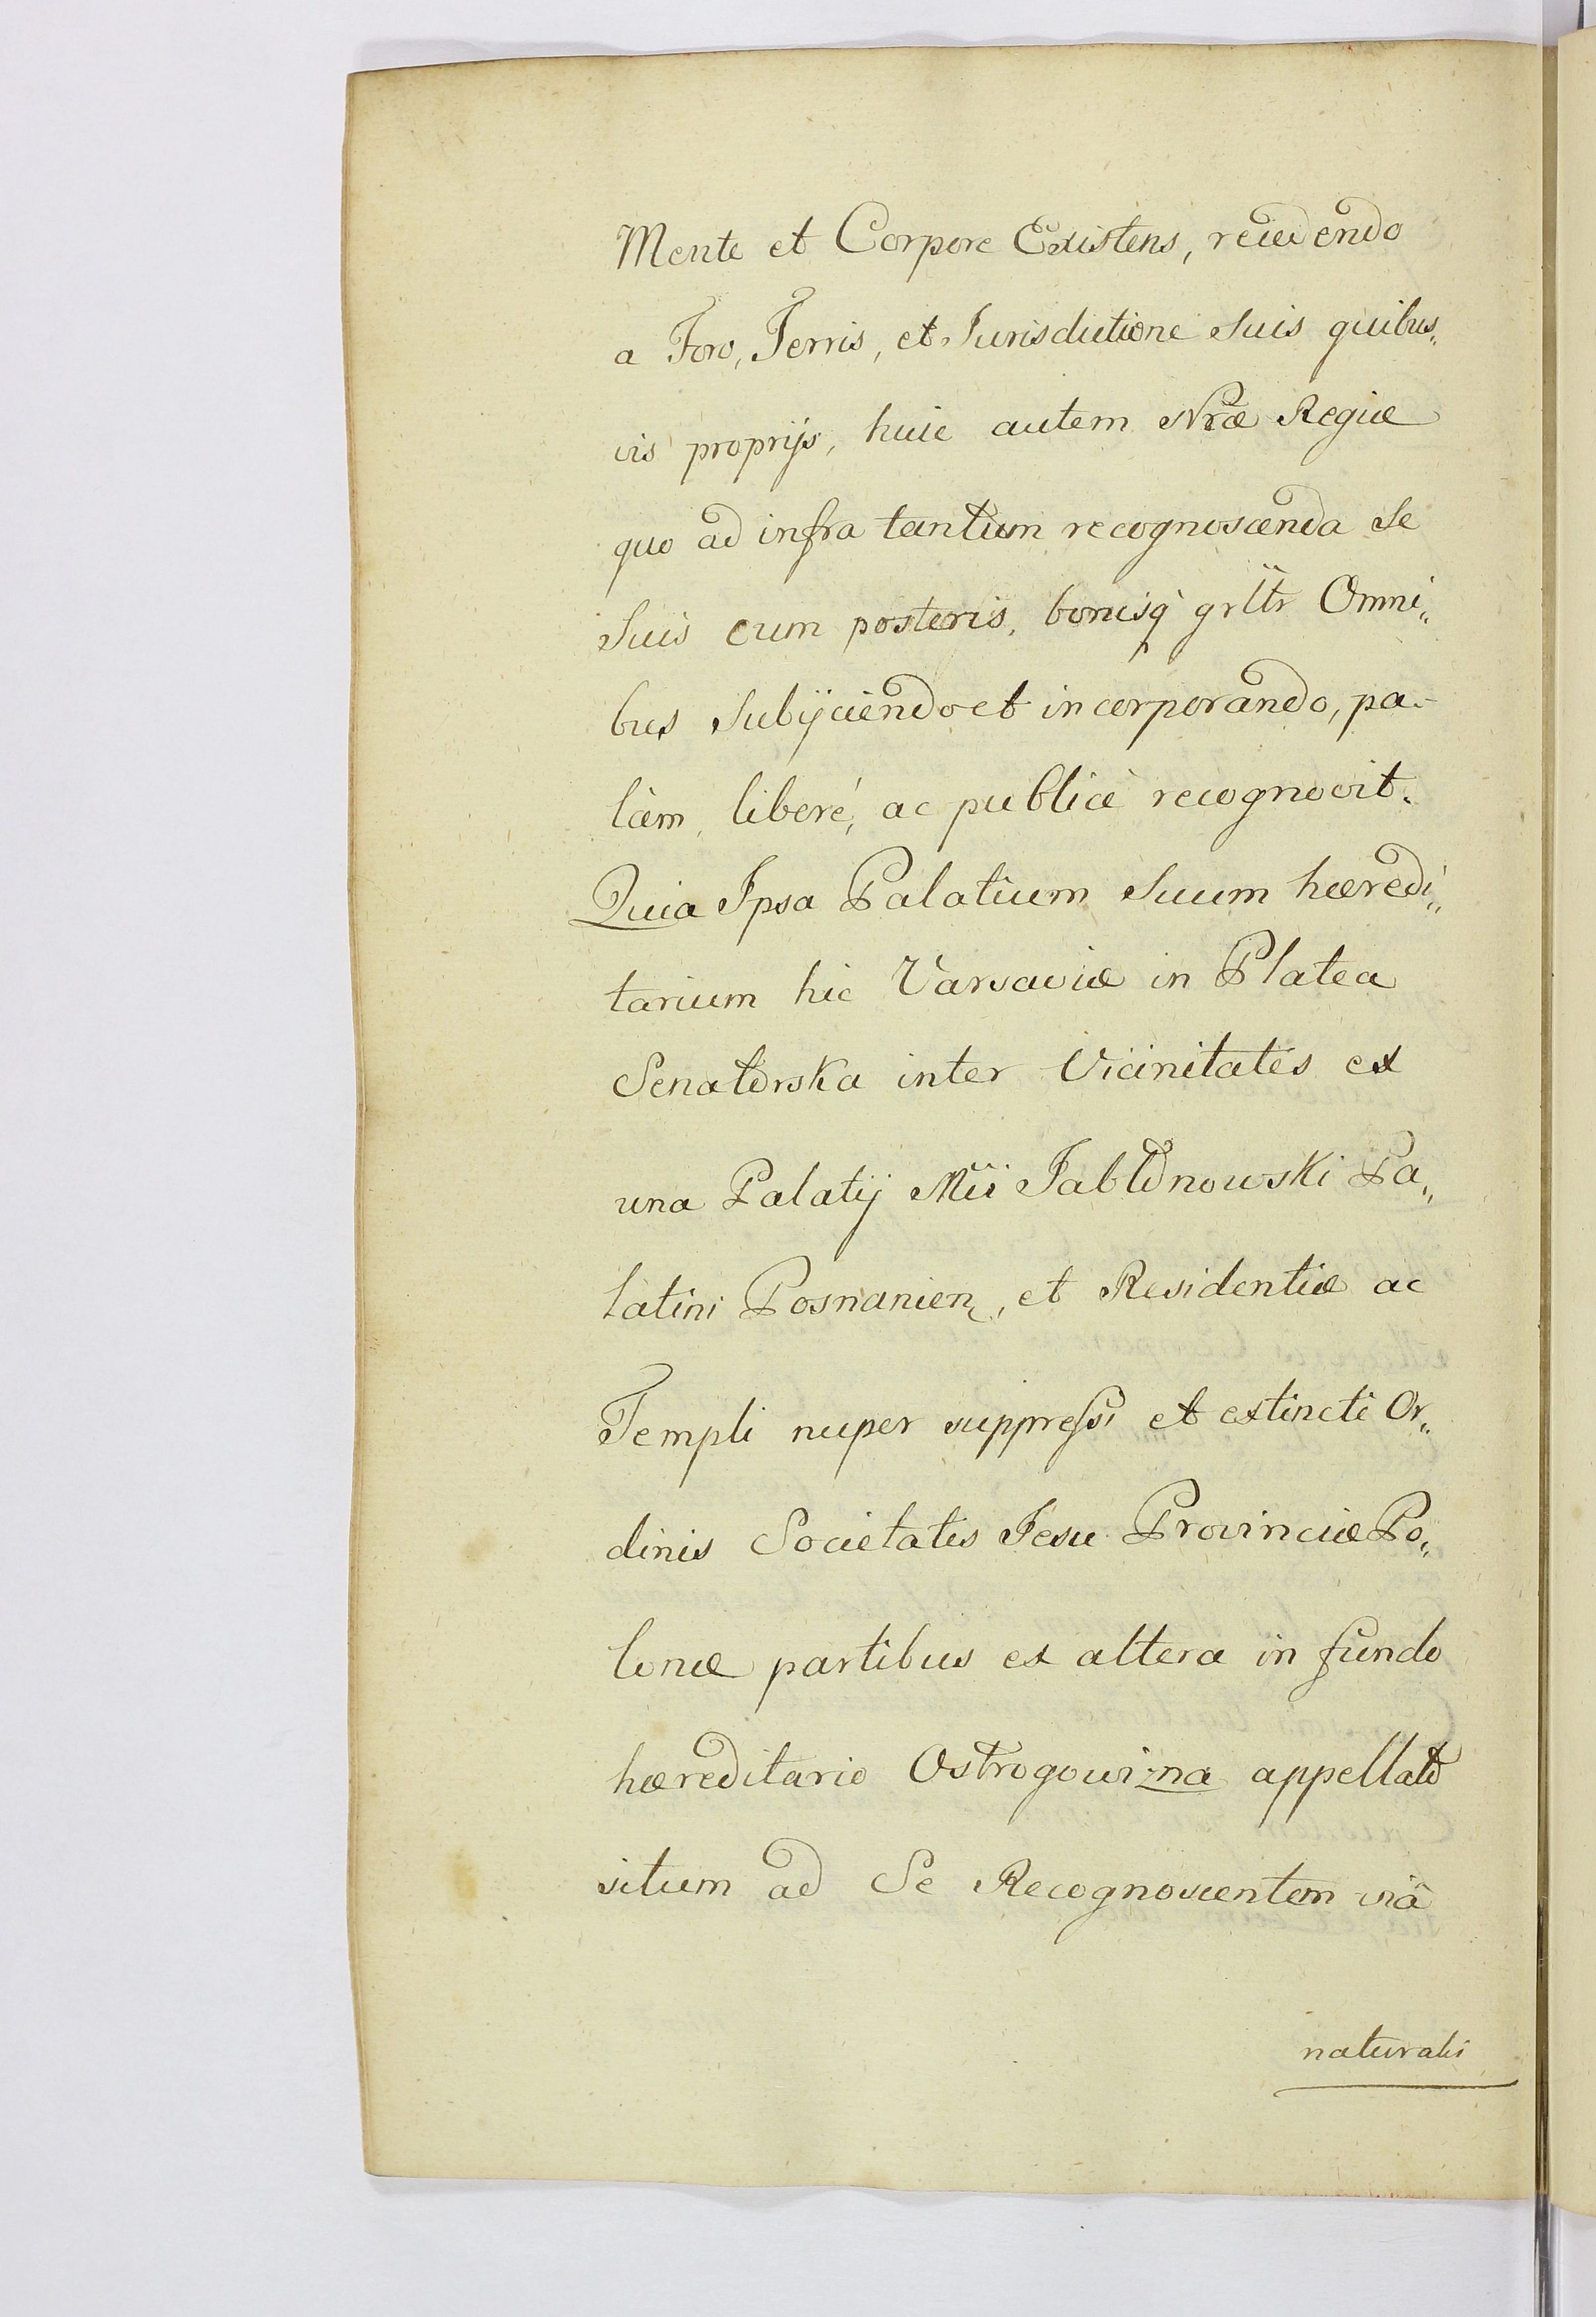 Mente et Corpore Existens, recedendo
a Foro, Terris, et Jurisdictione Suis quibus„
vis proprijs, huic autem Nrae Regiae
quo ad infra tantum recognoscenda Se
Suis cum posteris, bonisq grltr Omni„
bus Subijciendo et incorporando, pa-
làm, liberé, ac publicè recognovit.
Quia Ipsa Palatium Suum haeredi„
tarium hic Varsaviae in Platea
Senatorska inter Vicinitates ex
una Palatij Mii Jabłonowski Pa„
latini Posnanien, et Residentiae ac
Templi nuper suppressi et extincti Or„
dinis Societatis Jesu Provinciae Po„
loniae partibus ex altera in fundo
haereditario Ostrogowizna appellato
situm ad Se Recognoscentem viâ
naturali